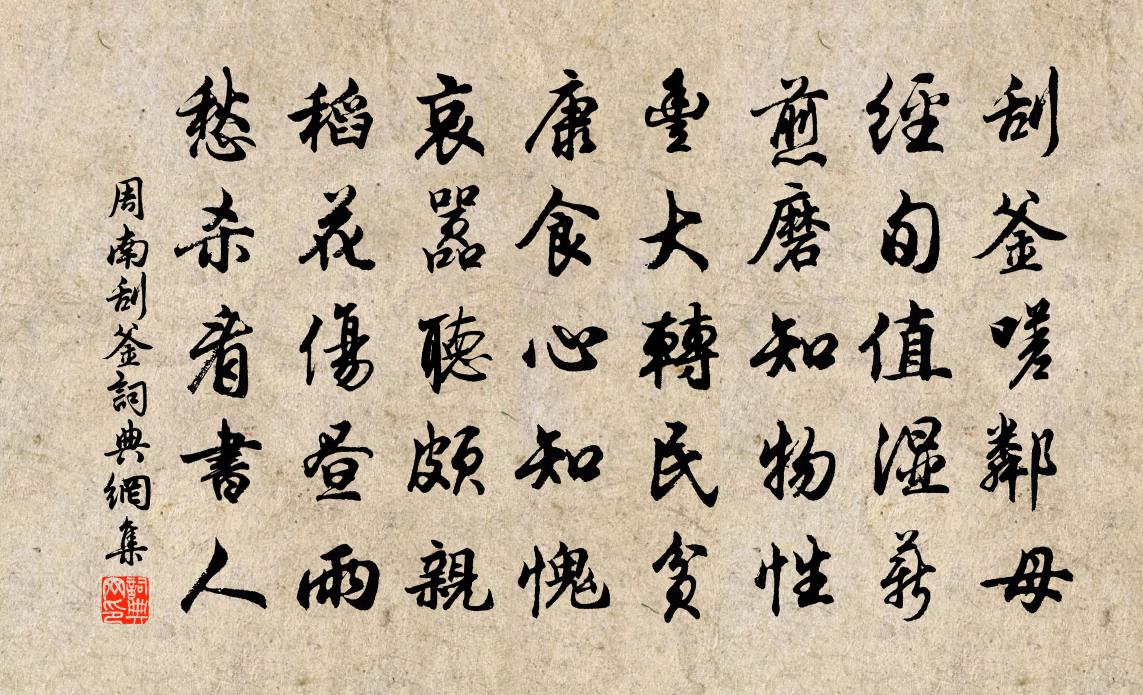 刮釜嗟鄰母
經旬值濕薪
煎磨知物性
豐大轉民貧
康食心知愧
哀嚣聽頗親
稻花傷晝雨
愁杀看書人
周南刮釜詞典網集
詞典网印